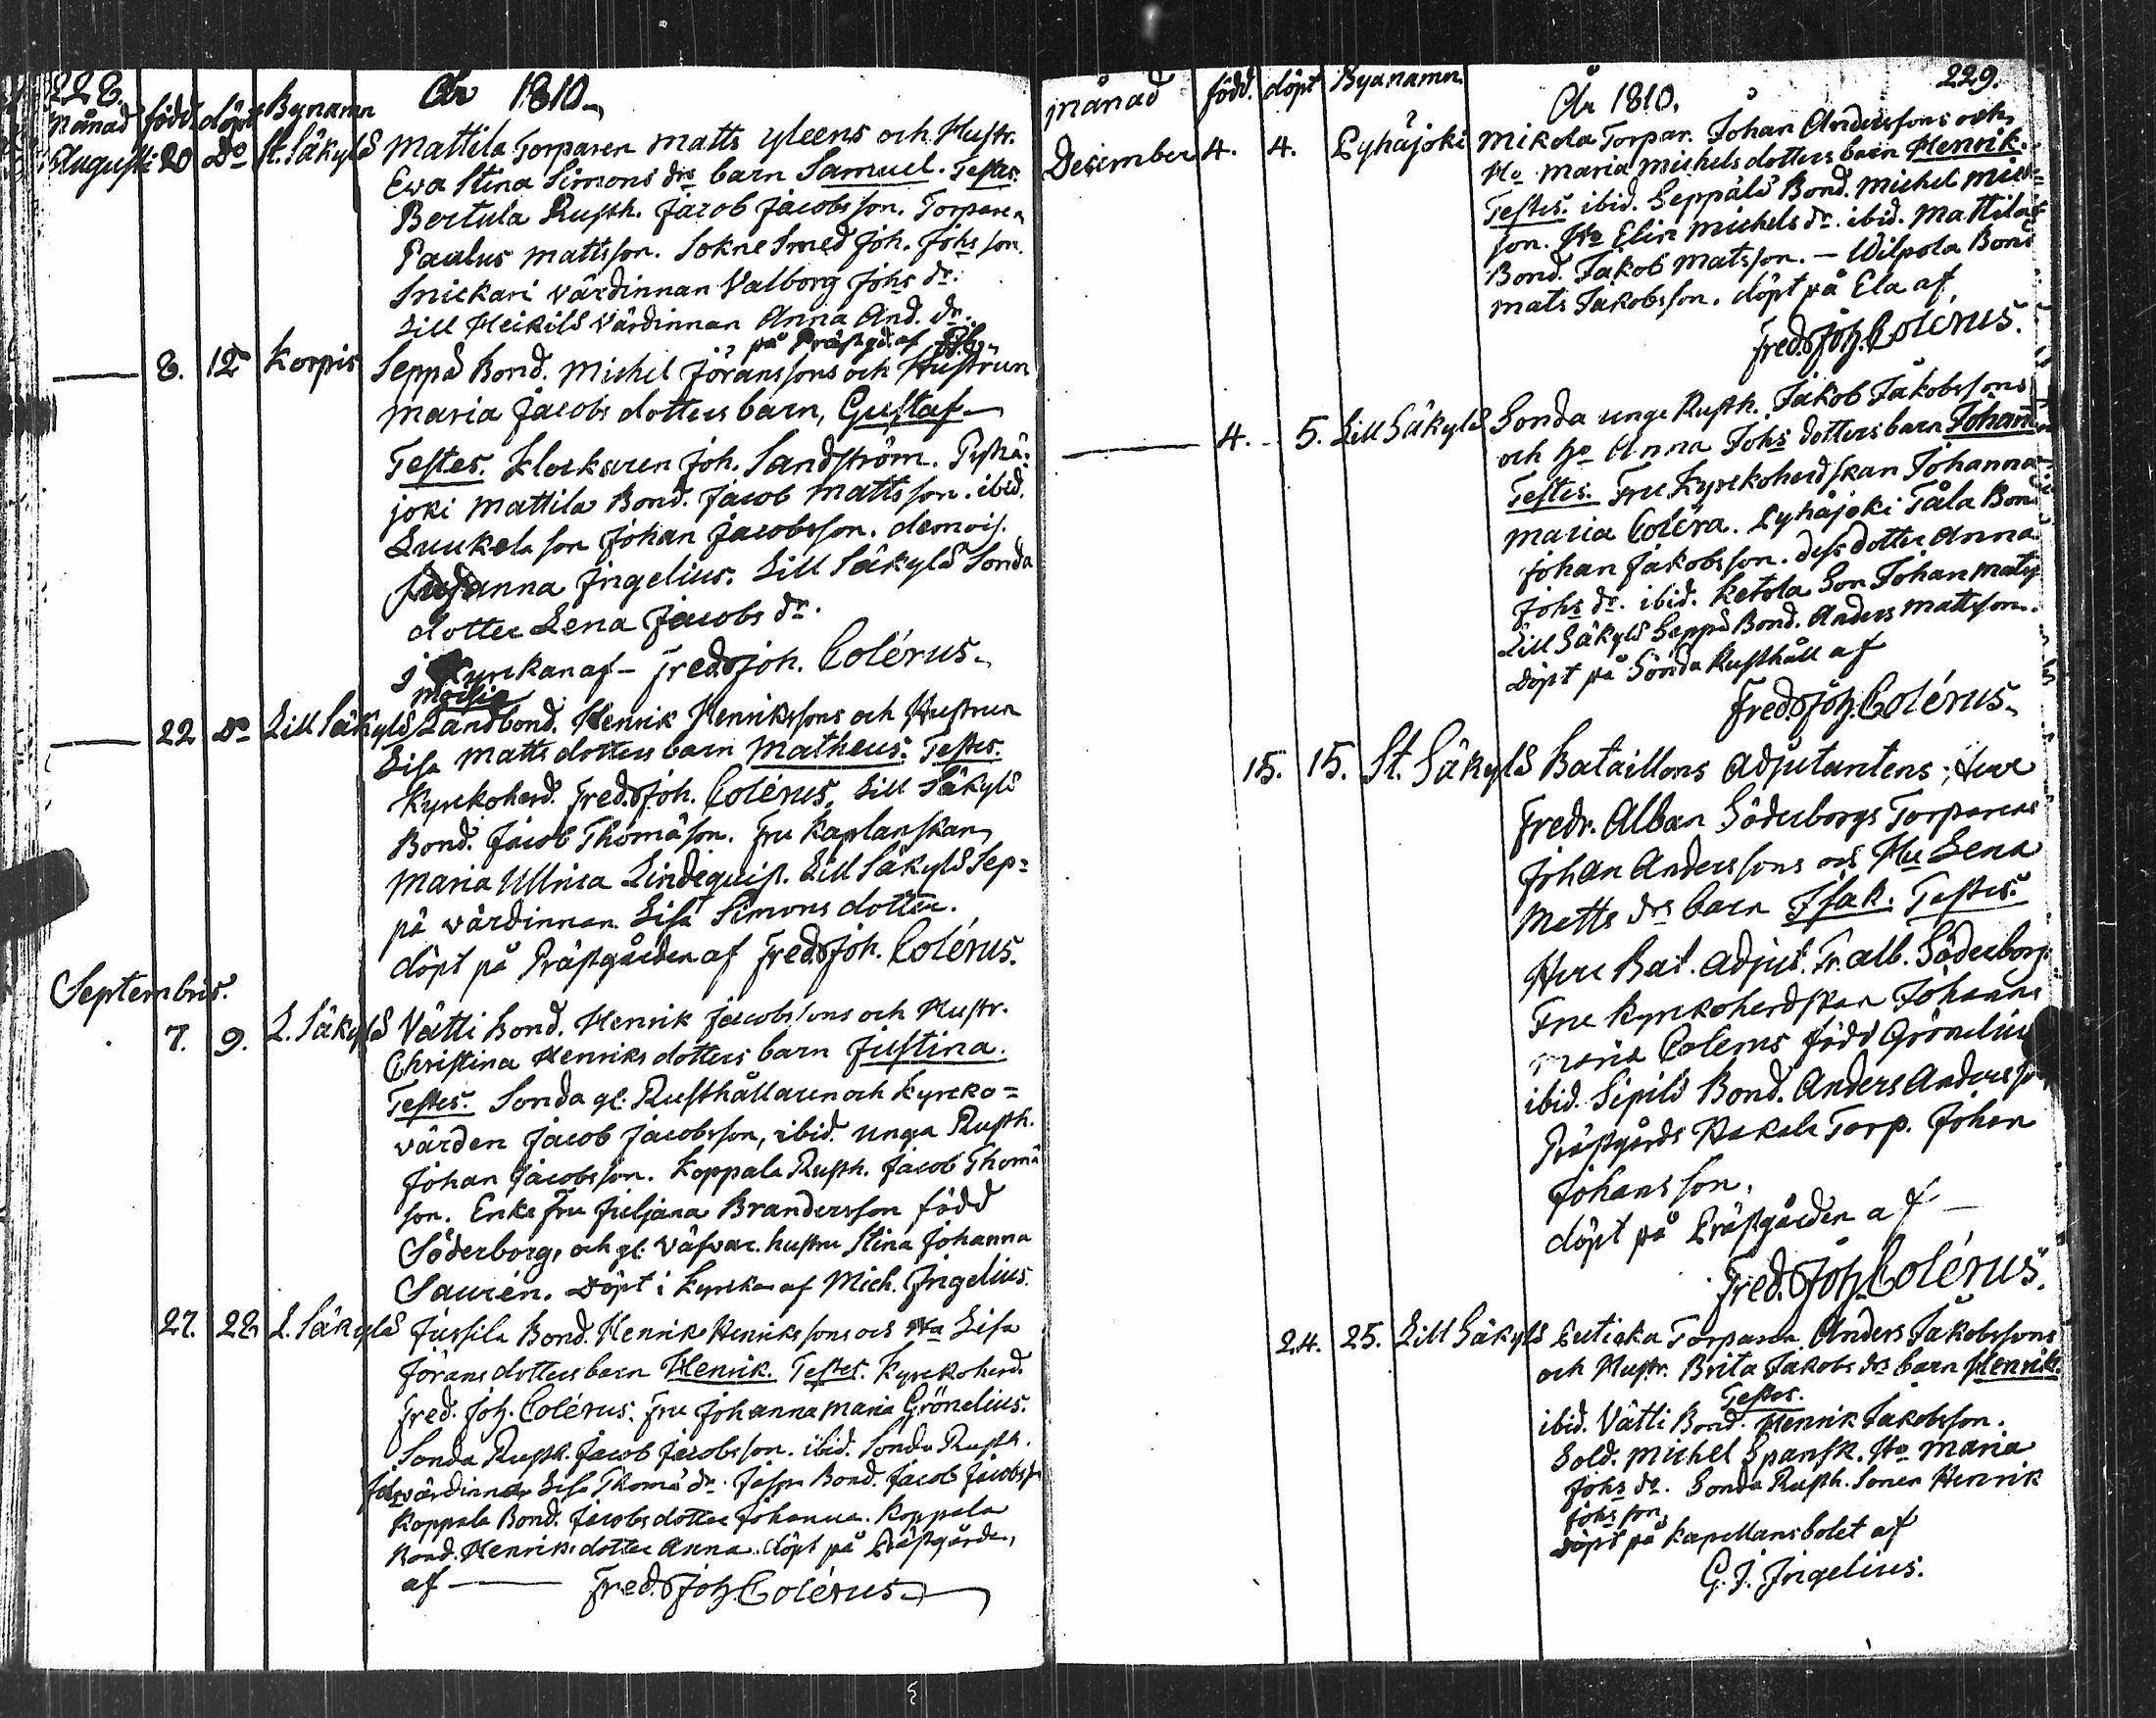 228.
Månad född döpt Bynamn År 1810.
Augusti 20 Do St. Säkylä Mattila Torparen Matts yleens och Hustr.
Ewa Stina Simons drs barn Samuel. Testes.
Bertula Rusth. Jacob Jacobsson. Torparen
Paulus Mattsson. Sokne Smed Joh. Johs son.
Snickari värdinnan Valborg Johs dr.
Lill Heikilä Värdinnan Anna And. dr.
på Prästgd. af
8. 12 Korpis Seppä Bond. Michel Jöranssons och Hustrun
Maria Jacobs dotters barn, Gustaf
Testes. Klockaren Joh. Sandström. Pyhä-
joki Mattila Bond. Jacob Mattsson. ibid.
Luukela son Johan Jacobsson. demois.
Susanna Ingelius. Lill Säkylä Sonda
dotter Lena Jacobs dr.
i Kyrckan af – Fred. Joh. Colérus.
22 Do Lill Säkylä Landbond. Henrik Henrikssons och Hustrun
Lisa Matts dotters barn Matheus. Testes.
Kyrckoherd. Fred. Joh. Colérus, Lill Säkylä
Bond. Jacob Thomäson. Fru Kaplanskan
Maria Ullrica Lindequist. Lill Säkylä Sep=
pä värdinnan Lisa Simons dotter.
döpt på Prästgården af Fred. Joh. Colérus.
Septembris.
7. 9. L. Säkylä Vätti Bond. Henrik Jacobssons och Hustr.
Christina Henriks dotters barn Justina.
Testes. Sonda gl. Rusthållaren och Kyrcko=
värden Jacob Jacobsson, ibid. unga Rusth.
Johan Jacobsson. Koppala Rusth. Jacob Thomä
son. Enke Fru Juljana Brandersson född
Söderborg, och gl. Väfvar. hustru Stina Johanna
Saurén. döpt i Kyrckan af Mich. Ingelius.
27. 22. L. Säkylä Jussila Bond. Henrik Henrikssons och Hu Lisa
Jörans dotters barn Henrik. Testes. Kyrckoherd.
Fred. Joh. Colérus. Fru Johanna Maria Grönelius.
Sonda Rusth. Jacob Jacobsson. ibid. Sonda Rusth.
värdinnan Lisa Thomä dr. Bond. Jacob Jacobsson
Koppala Bond. Jacobs dotter Johanna. Koppala
Bond. Henriks dotter Anna. döpt på Prästgården,
af — Fred. Joh. Colérus
229.
Månad född. döpt Byanamn. År 1810.
December 4. 4. Pyhäjoki Mikola Torpar. Johan Anderssons och
Ho Maria Michels dotters barn Henrik.
Testes. ibid. Seppälä Bond. Michel Mich=
son. Ho Elin Michels dr. ibid. Mattila
Bond. Jakob Matsson. – Wilpola Bond
Mats Jakobsson. döpt på Ela af
Fred. Joh. Colérus.
4. 5. Lill Säkylä Sonda unge Rusth. Jakob Jakobssons
och Ho Anna Johs dotters barn Johan
Testes. Fru Kyrckoherdskan Johanna
Maria Coléra. Pyhäjoki Tåla Bond
Johan Jakobsson. dess dotter Anna
Johs dr. ibid. Ketola Son Johan Mats
Lill Säkylä Seppä Bond. Anders Mattsson.
döpt på Sonda Rusthåll af
Fred. Joh. Colérus.
15. 15. St. Säkylä Bataillons Adjutantens, Herr
Fredr. Alban Söderborgs Torparens
Johan Anderssons och Hu Lena
Matts drs barn Isak. Testes.
Herr Bat. Adjut. Fr. Alb. Söderborg
Fru Kyrckoherdskan Johanna
Maria Colerus född Grönelius
ibid. Sipilä Bond. Anders Andersson
Prästgårds Kakala Torp. Johan
Johansson.
döpt på Prästgården af –
Fred. Joh. Colérus.
24. 25. Lill Säkylä Torparen Anders Jakobssons
och Hustr. Brita Jakobs drs barn Henrik.
Testes.
ibid. Vätti Bond. Henrik Jakobsson.
Sold. Michel Spansk. Ho Maria
Johs dr. Sonda Rusth. Sonen Henrik
Johs son,
döpt på Kapellansbolet af
G. J. Ingelius.